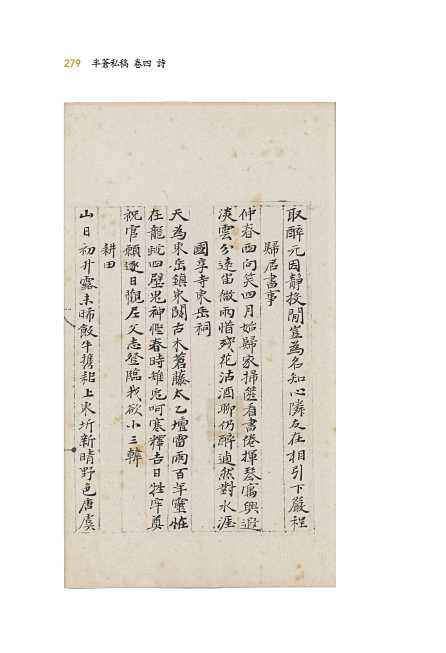 279 半蒼私稿 卷四 詩
取醉元因靜投閒豈為名知心隣友在相引下嚴程
歸居書事
仲春西向笑四月始歸家掃篋看書倦揮琴寓興遐
淡雲分遠岫微雨惜殘花沽酒聊仍醉適然對水涯
國享寺東岳祠
天為東岳鎮東關古木蒼藤太乙壇雷雨百年靈怪
在龍蛇四壁鬼神 春時雉兎呵寒釋吉日牲牢奠
祝官願逐日觀居父志登臨我欲小三韓
耕田
山日初升露未晞飯牛携耜上東圻新晴野色唐虞